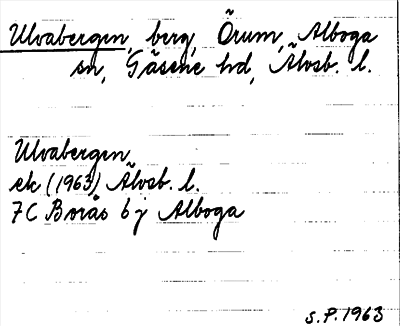 Ulvabergen, berg, Örum, Alboga
sn, Gäsene hd, Älvsb. l.
Ulvabergen
ek (1963) Älvsb. l.
7C Borås 6 j Alboga
S.P. 1963